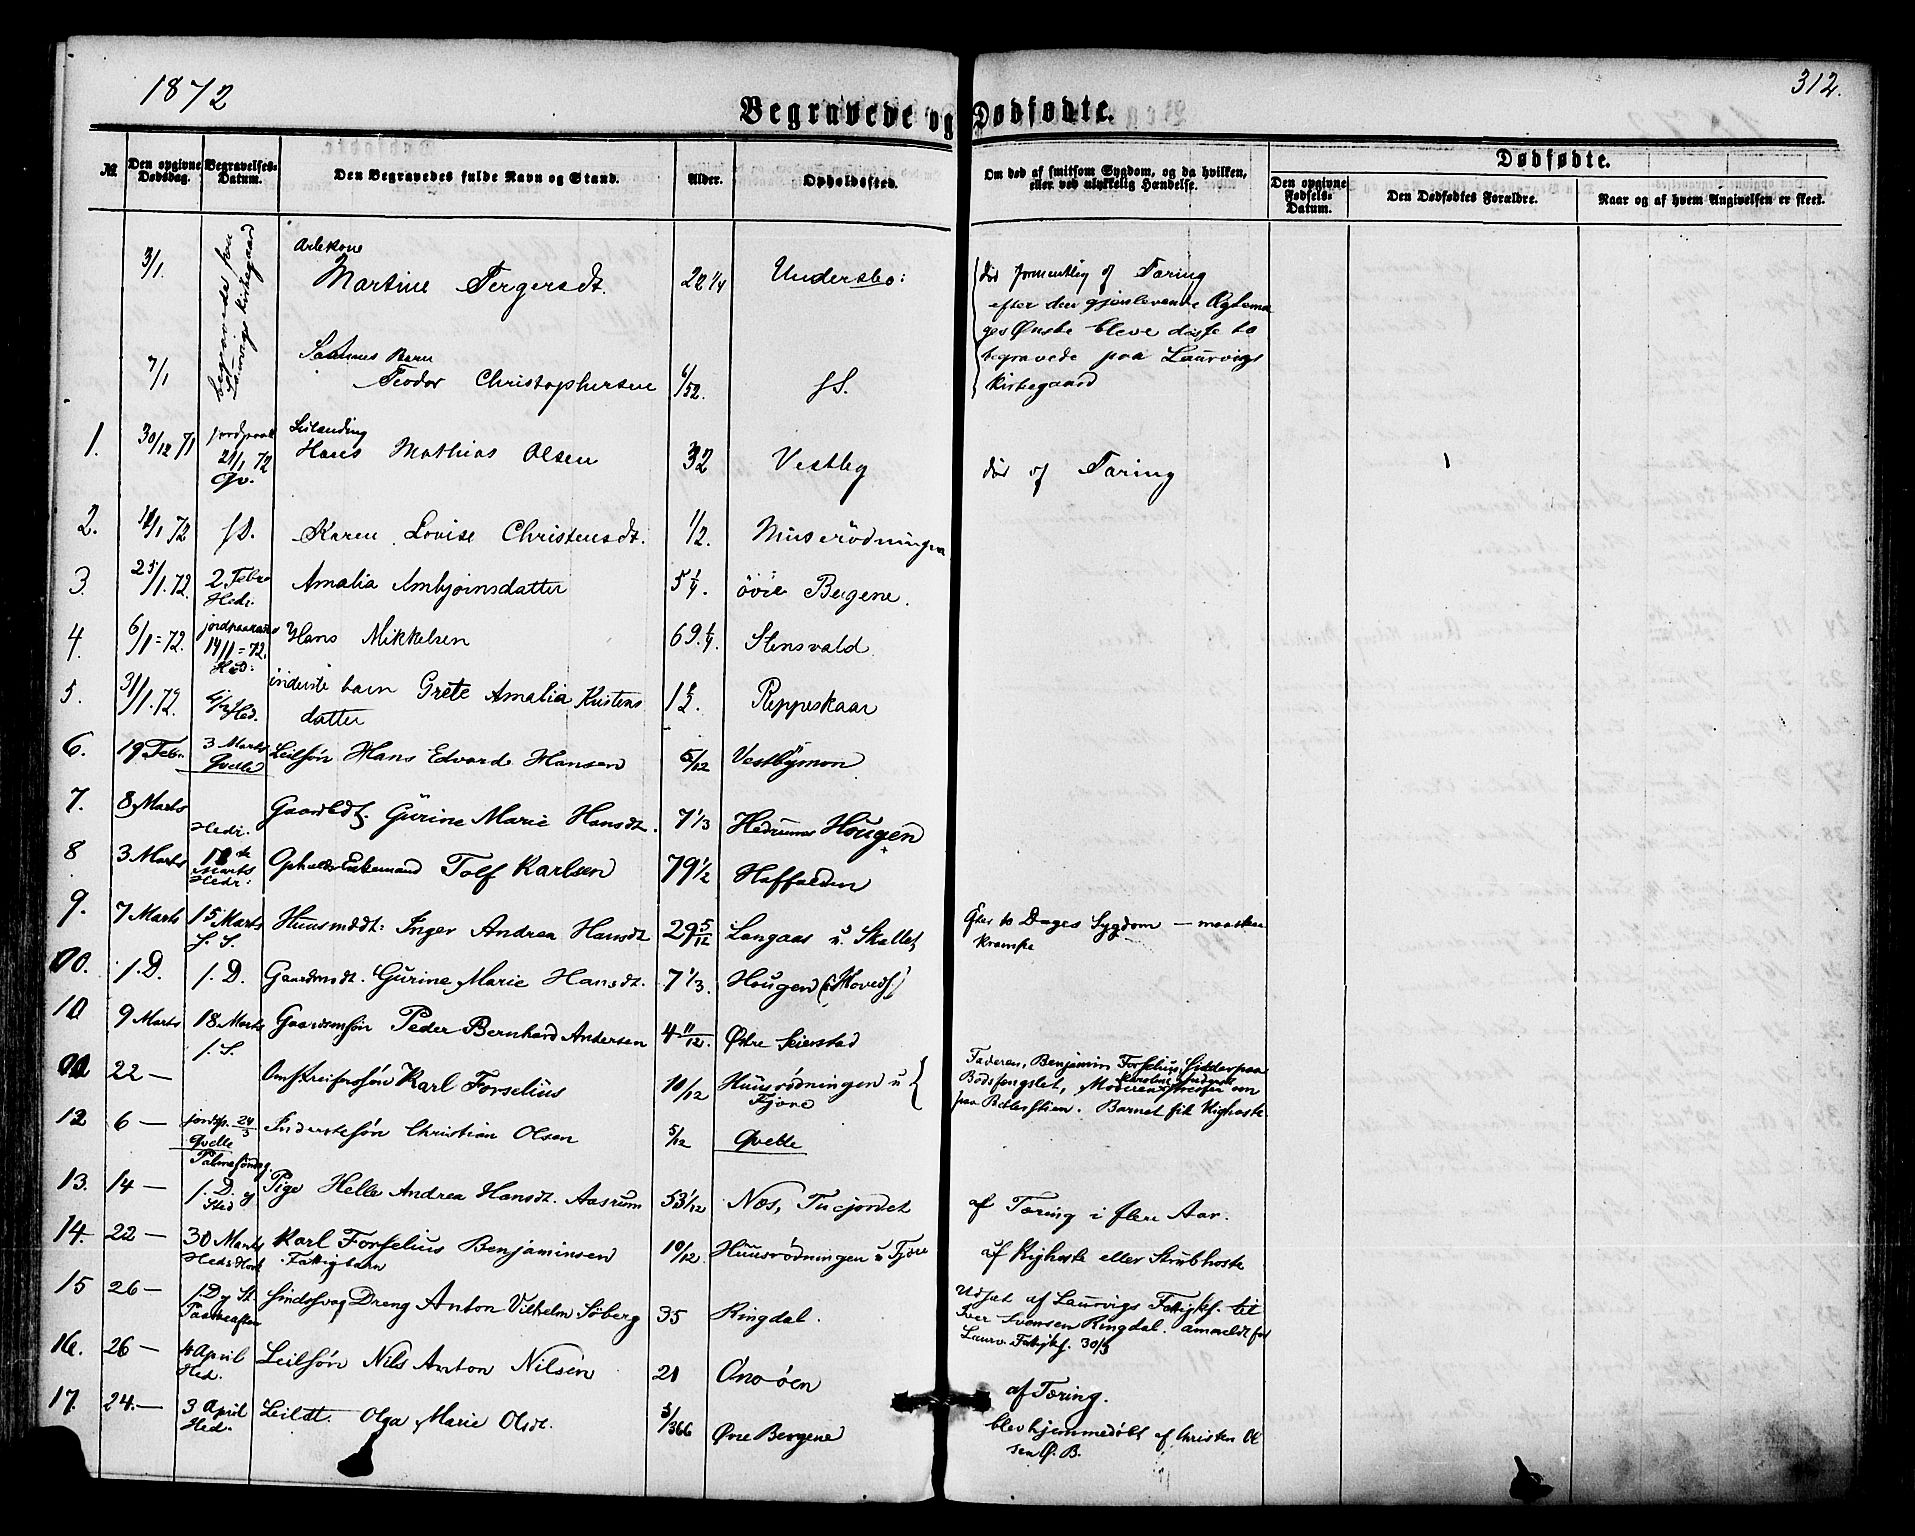 1872
312.
Begravede og Dødfødte.
№
Den opgivne Dødsdag.
Begravelses-Datum.
Den Begravedes fulde Navn og Stand.
Alder.
Opholdssted.
Om død af smitsom Sygdom, og da hvilken, eller ved ulykkelig Hændelse.
Dødfødte.
Den opgivne Fødsels-Datum.
Den Dødfødtes Forældre.
Naar og af hvem Angivelsen er skeet.
3/1. begravede paa Laurvigs Kirkegaard
Martine Tergersdt. 22 1/4 Undersbo:
død formentlig af Tæring
efter den gjenlevende
Ønske bleve disse to
begravede paa Laurvigs
Kirkegaard
7/1 Sammes Barn
Teodor Christophersen 6/52. f S.
1. 30/12 71 jordpaak 21/1 72 Qv.
Hans Mathias Olsen 32 Vestby død af Tæring
2. 14/1 72 f D. Karen Lovise Christensdt. 1/2.
3. 25/1. 72. 2 Febr Hedr. Amalia Arnbjørnsdatter 5 1/4. øvre Bergene.
4. 6/1=72. jordpaak 14/1=72. Hed: Hans Mikkelsen 69.1/4 Stensvald
5. 31/1.72. Hed. inderste barn Grete Amalia Kristens
datter Reppeskaar
6. 19 Febr. 3 Marts Qvelle Leilsøn Hans Edvard Hansen 5/12 Vestbymon
7. 8 Marts Hedr. Gaardbdt. Gurine Marie Hansdt. 7 1/3 Hedrums Hougen
8 3 Marts 18de Marts Hedr: Tolf Karlsen 79 1/2 Haffalden
9. 7 Marts 15 Marts f. S. Huusmdt: Inger Andrea Hansdt 29 5/12 Langaas u. Skallet
Efter 10 Dages Sygdom — maaskee
Krampe
f. D. f. D. Gaardmdt. Gurine Marie Hansdt. 7 1/3. Hougen
10 9 Marts 18 Marts f. S. Gaardmsøn Peder Bernhard Andersen 4 11/12. Østre Seierstad
22 — Omstreifersøn Karl Forselius 10/12 Huusrødningen u Fjære
Faderen, Benjamin Forselius, sidder paa
Bodsfengslet, Moderen streifer om
paa Barnet fik Kighoste
12 6 — jordp. 24/3 Qvelle Inderstesøn Christian Olsen 5/12 Qvelle
Palmesøndag
13. 14 — f. D. og Sted Pige Helle Andrea Hansdt. Aasrum 53 1/12 Nes, Tucjordet
af Tæring i flere Aar.
14. 22 — 30 Marts Karl Forselius Benjaminsen 10/12 Huusrødningen u Fjære
Fattigbarn af Kighoste eller Strubhoste
15 26 — f. D og St. Paaskeaften Sindssvag Dreng Anton Vilhelm Søberg 35 Ringdal.
Udsat af Laurvigs Fattigk. til
Iver Svensen Ringdal. anmeldt for
Laurv. Fattigk. 30/3
16. 26 — 4 April Hed. Leilsøn Nils Anton Nilsen 21 Onsøen
af Tæring.
17. 24. — 3 April Hed. Leildt. Olga Marie Olsdt. 3/366 Øvre Bergene
blev hjemmedøbt af Christen Ol
sen Ø. B.